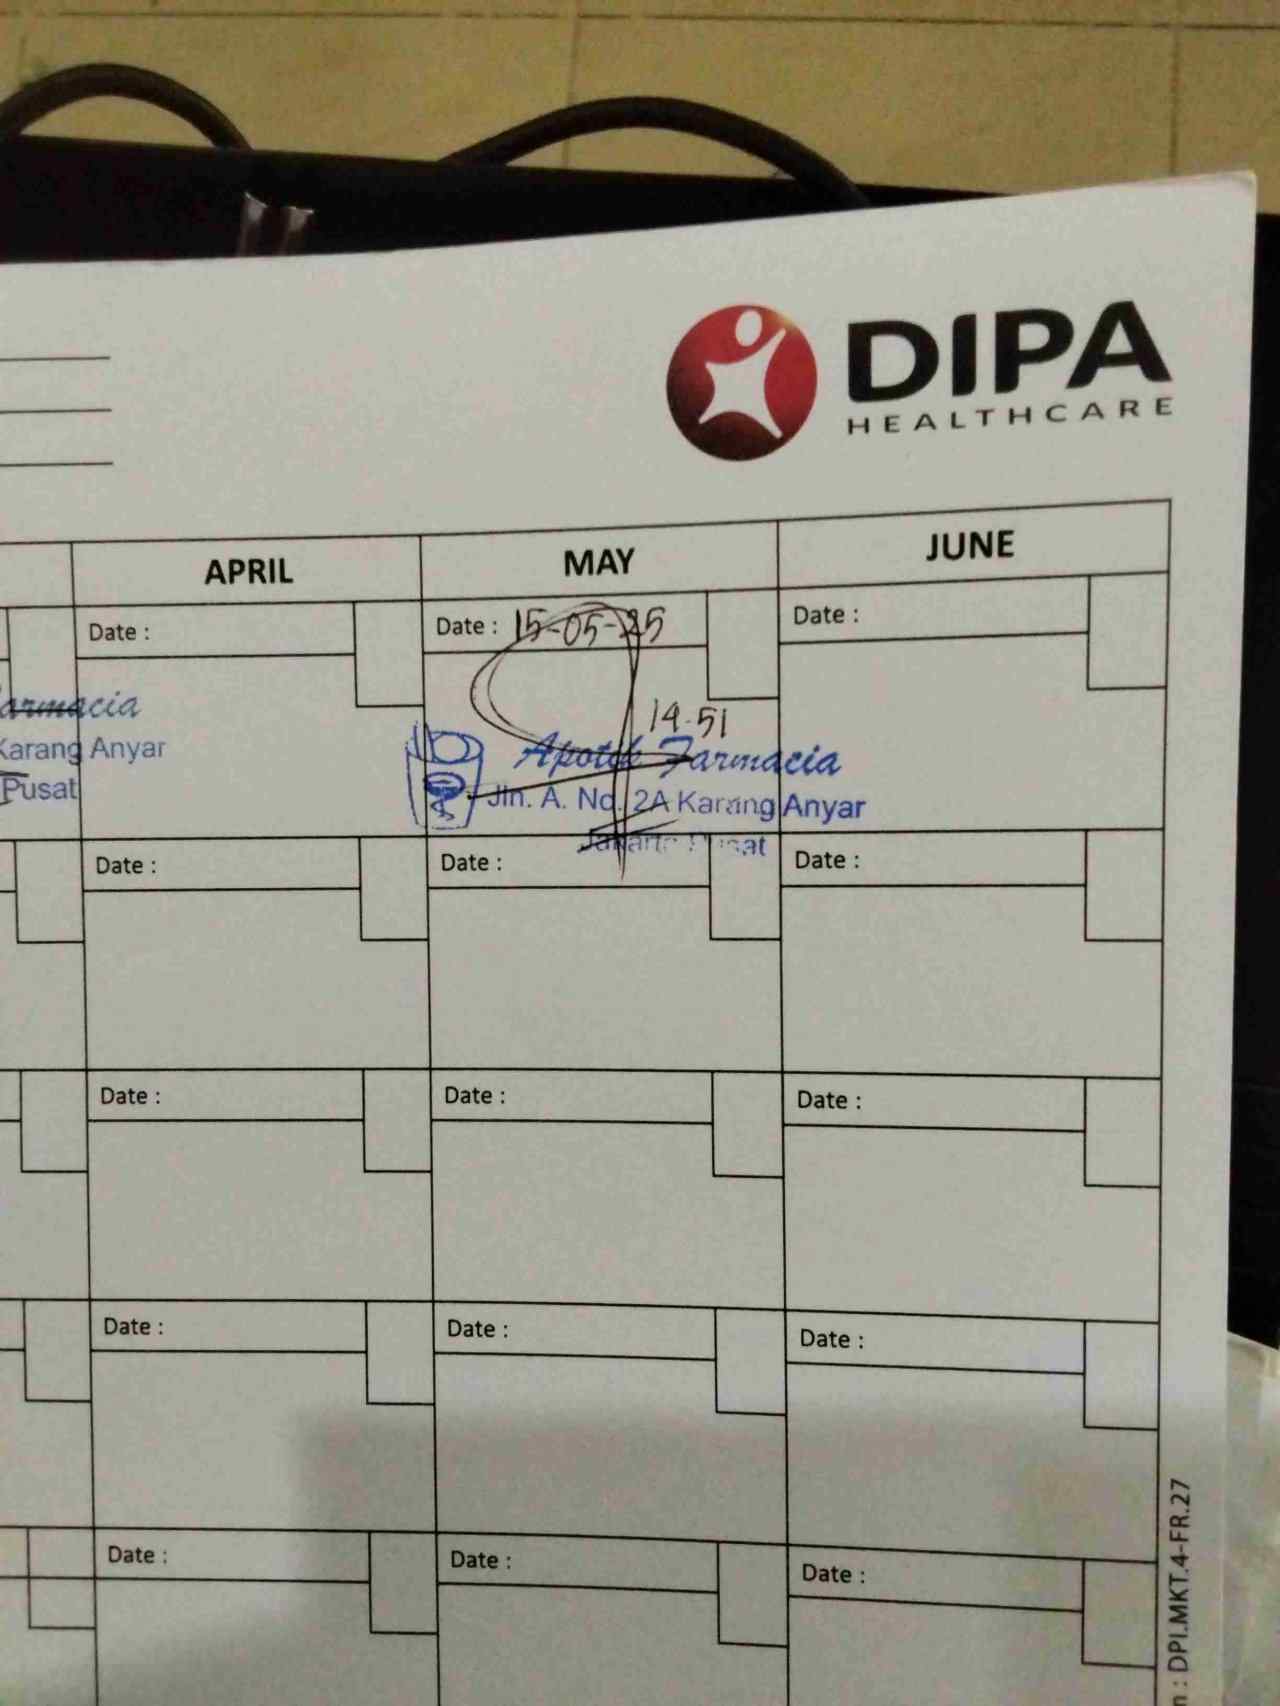 DIPA
HEALTHCARE
APRIL MAY JUNE
Date : Date : 15-05-25 Date :
14.51
armacia Apotik Farmacia
Karang Anyar Jln. A. No. 2A Karang Anyar
Pusat Jakarta Pusat
Date : Date : Date :
Date : Date : Date :
Date : Date : Date :
Date : Date : Date :
: DPI.MKT.4-FR.27